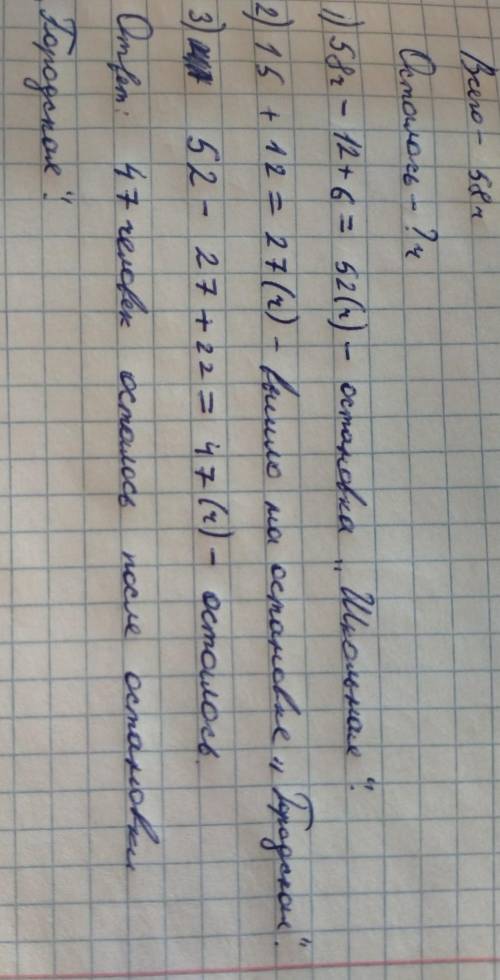 Всего - 58ч
Осталось - ? ч
1) 58ч - 12 + 6 = 52(ч) - остановка „Школьная“.
2) 15 + 12 = 27(ч) - вышло на остановке „Городская“.
3) 52 - 27 + 22 = 47(ч) - осталось.
Ответ: 47 человек осталось после остановки
„Городская“.